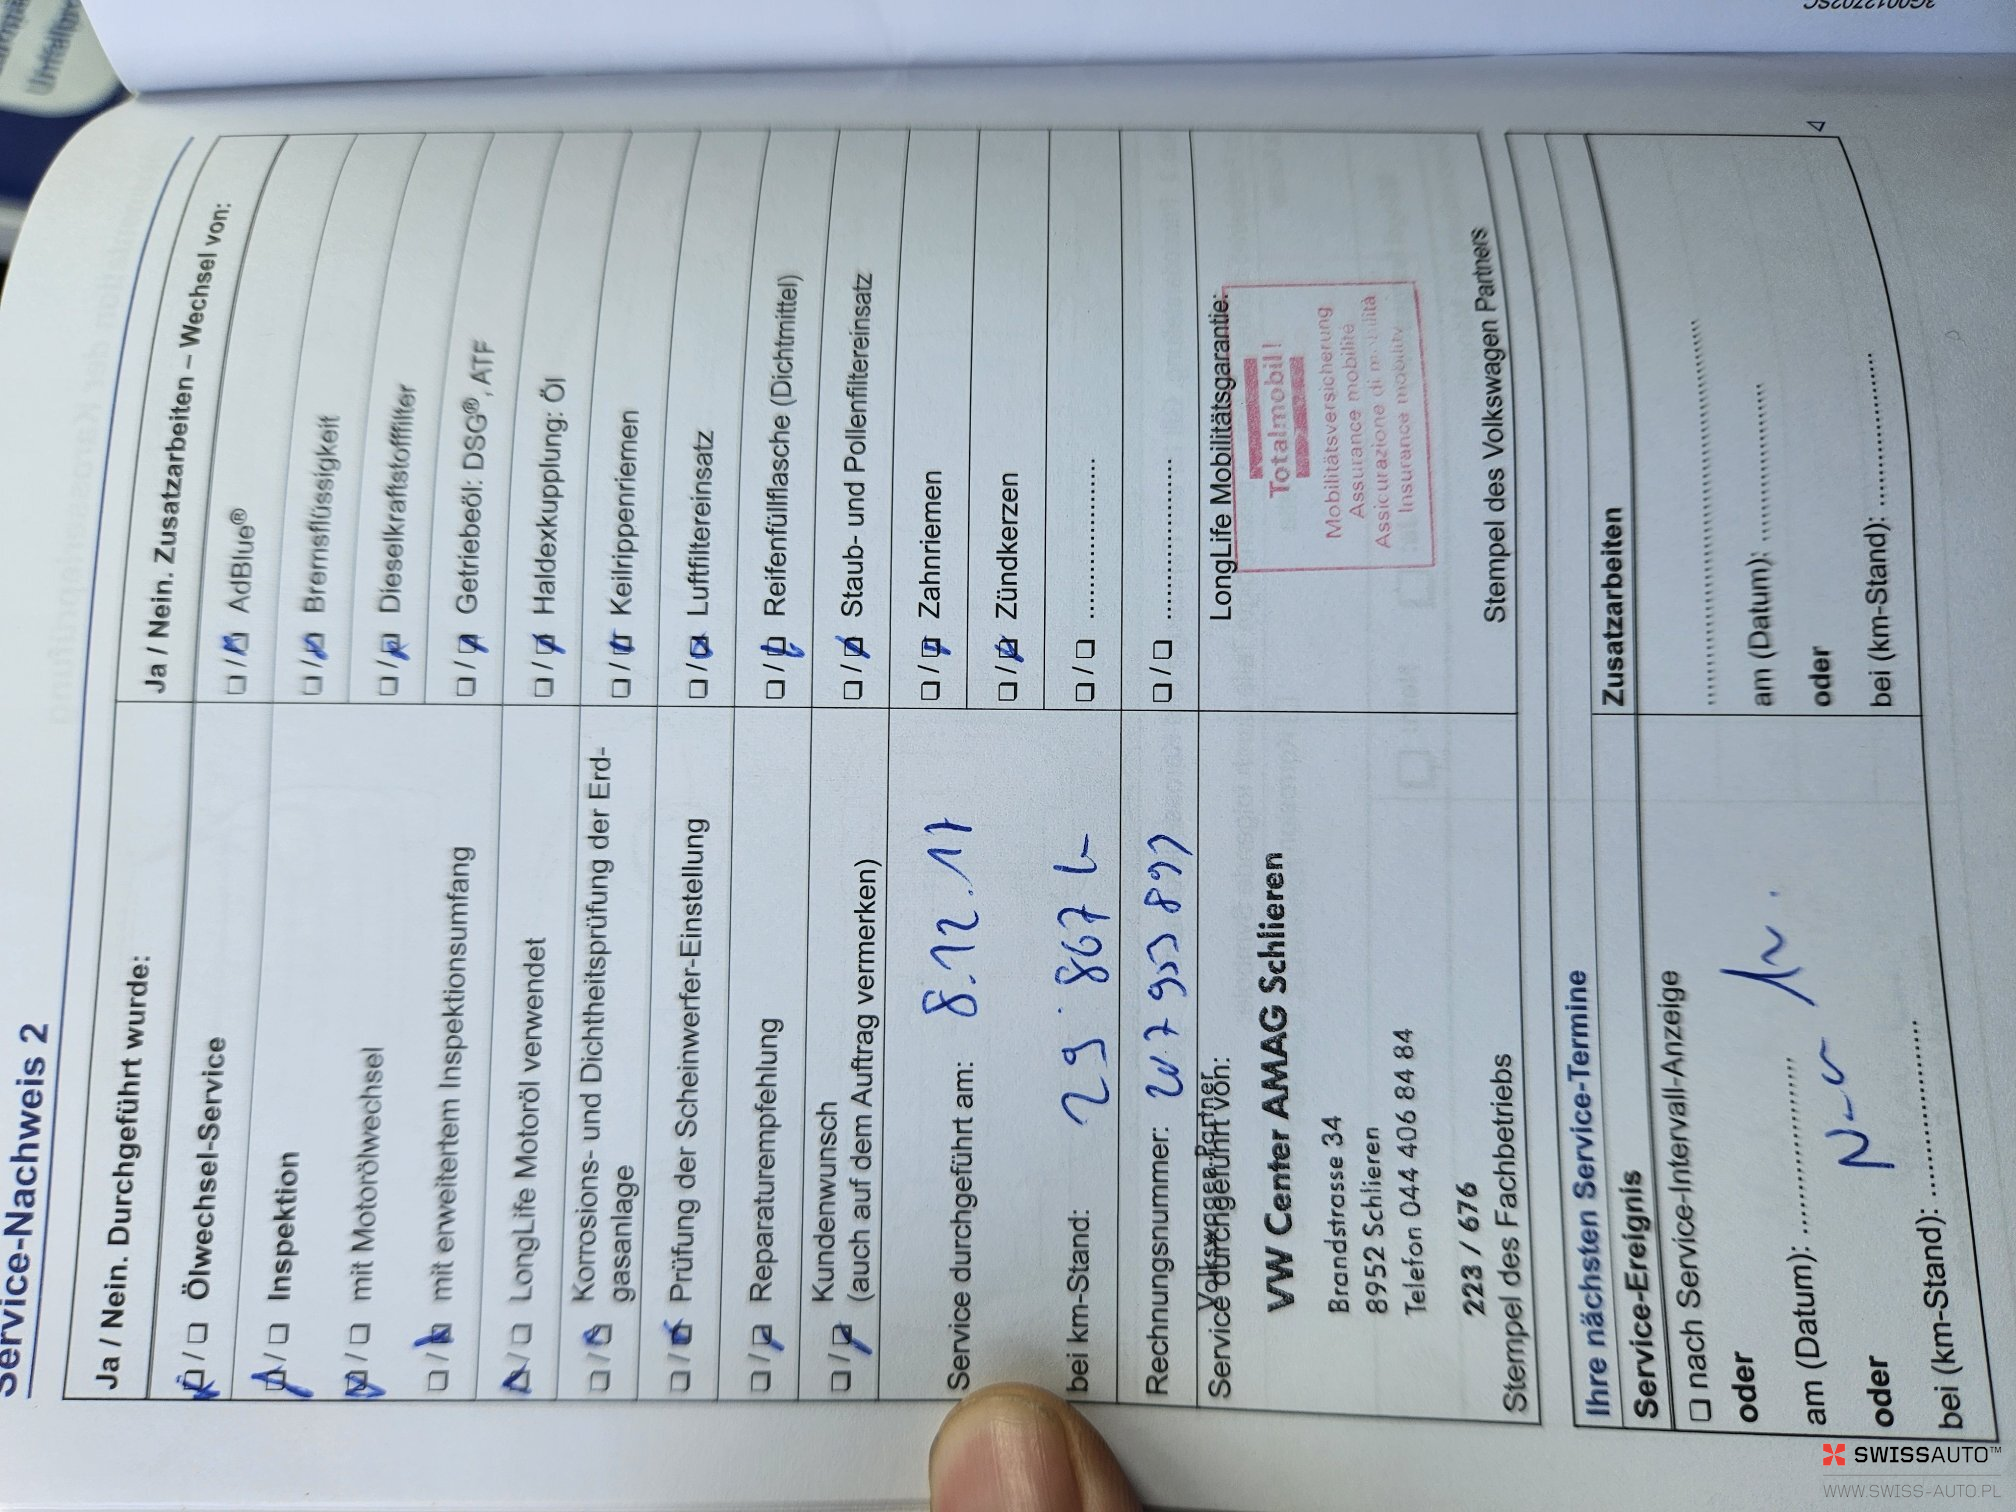 Service-Nachweis 2
Ja / Nein. Durchgeführt wurde:
Ölwechsel-Service
Inspektion
mit Motorölwechsel
mit erweitertem Inspektionsumfang
LongLife Motoröl verwendet
Korrosions- und Dichtheitsprüfung der Erd-
gasanlage
Prüfung der Scheinwerfer-Einstellung
Reparaturempfehlung
Kundenwunsch
(auch auf dem Auftrag vermerken)
Service durchgeführt am: 8.12.17
bei km-Stand: 29'867
Rechnungsnummer:
Volkswagen Partner
Service durchgeführt von:
VW Center AMAG Schlieren
Brandstrasse 34
8952 Schlieren
Telefon 044 406 84 84
223 / 676
Stempel des Fachbetriebs
Ja / Nein. Zusatzarbeiten – Wechsel von:
AdBlue®
Bremsflüssigkeit
Dieselkraftstofffilter
Getriebeöl: DSG®, ATF
Haldexkupplung: Öl
Keilrippenriemen
Luftfiltereinsatz
Reifenfüllflasche (Dichtmittel)
Staub- und Pollenfiltereinsatz
Zahnriemen
Zündkerzen
LongLife Mobilitätsgarantie:
Totalmobil!
Mobilitätsversicherung
Assurance mobilité
Assicurazione di mobilità
Insurance mobility
Stempel des Volkswagen Partners
Ihre nächsten Service-Termine
Service-Ereignis
nach Service-Intervall-Anzeige
oder
am (Datum):
oder
bei (km-Stand):
Zusatzarbeiten
am (Datum):
oder
bei (km-Stand):
3G0012702SC
SWISSAUTO™
WWW.SWISS-AUTO.PL